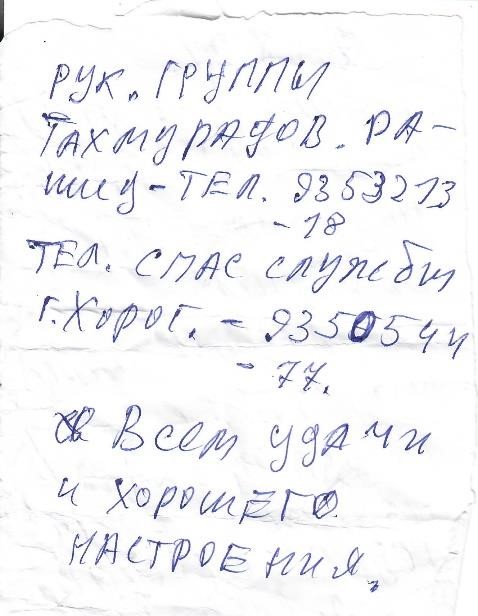 РУК. ГРУППЫ
ТАХМУРАДОВ. РА-
шид-ТЕЛ. 9353213
-18
ТЕЛ. СПАС службы
г. Хорог. - 9350544
- 77.
Всем удачи
и хорошЕГО
НАСТРОЕНИЯ.